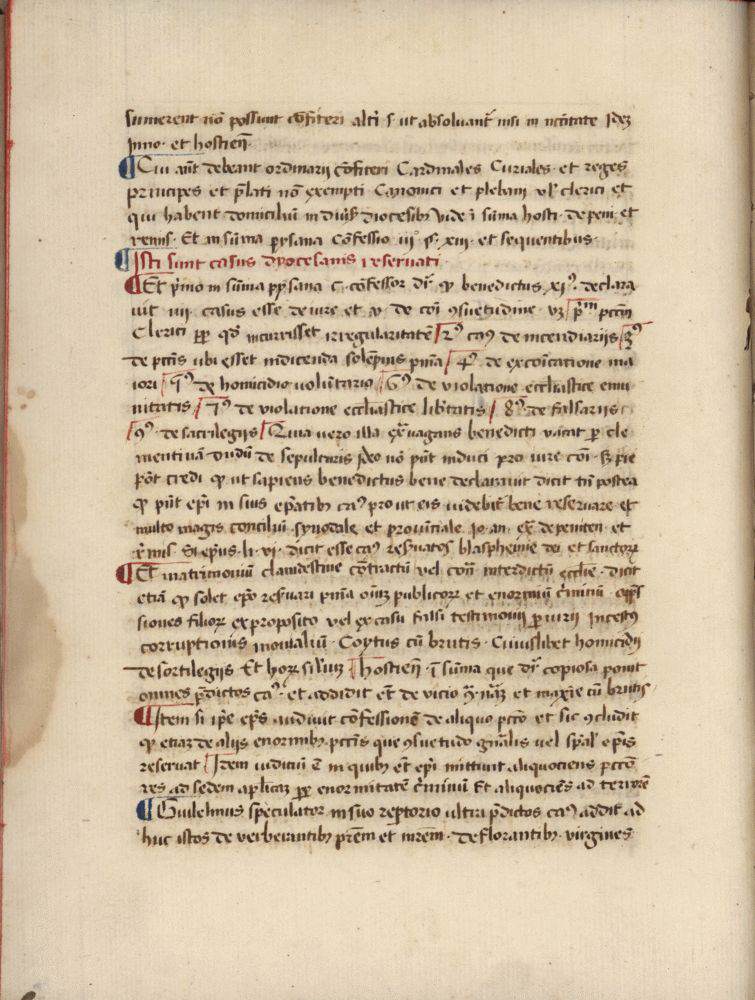 sumerent nō possunt cōfiteri alt̄i s̄ ut absoluant᷑ nisi in nēcitate Idez
Inno· et hostieñ·
¶ Cui aūt debeant ordinarij cōfiteri Cardinales Curiales· et reges
principes et p̄lati nō exempti Canonici et plebani vl' clerici et
qui habent domiciliū in diūs̄ diocesibꝰ vide ī sūma hosti· de peni· et
remis̄· Et in sūma pysana Confessio iij° §· xiij· et sequentibus·
¶ Isti sunt casus dyocesanis reseruati·
¶ Et p̄imo in sūma pysana c· cōfessor dī· ꝙ benedictus xj°· declara
uit iiij casus esse de iure et v de cōi ꝯsuetudine vꝫ p̄mᵐ pctm̄
Clerici ꝓꝑ qd̄ incurrisset irregularitatē 2ꝰ caꝰ de incendiarijs 3ꝰ
de pctīs ubi esset indicenda solēpnis pn̄ia 4ꝰ de excōicatione ma
iori 5ꝰ de homicidio voluntario 6ꝰ de violatione eccl̄iastice emu
nitatis 7ꝰ de violatione eccl̄iastice lib̄tatis 8ꝰ de falsarijs
9ꝰ· de sacrilegijs Quia vero illa ex̄uagans benedicti vacat ꝑ cle
mentinā Dudū de sepulturis Ideo nō pn̄t induci pro iure cōi· Sꝫ pie
pōt credi ꝙ ut sapiens benedictus bene declarauit dicit tn̄ postea
ꝙ pn̄t ep̄i in suis ep̄atibꝰ caꝰ prout eis videbit᷑ bene reseruare et
multo magis conciliū synodale et prouinciale Jo· an· ex̄ de peniten· et
r̄mis̄ Si ep̄us· li· vi· dicit esse caꝰ res̄uatos blasphemie dei et sanctoꝝ
¶ Et matrimoniū clandestine cōtractū vel cont̄ interdictū eccl̄ie· Dicit
etiā ꝙ solet ep̄o res̄uari pn̄ia om̄iꝫ publicoꝝ et enormiū c̄iminū opp̄s
siones filioꝝ ex proposito vel ex casu falsi testimonij periurij Incestꝰ
corruptionis monialiū· Coytus cū brutis· Cuiuslibet homicidij
de sortilegijs Et hoꝝ siliuꝫ Hostieñ· ī sūma que dī copiosa ponit
omnes p̄dictos caꝰ· et addidit et̄ de vicio ꝯ̄· nāꝫ et maxīe cū brutis
¶ Item si ip̄e ep̄s audiuit cōfessionē de aliquo pctō et sic ꝯcludit
ꝙ etiaꝫ de alijs enormibꝰ pctīs que ꝯsuetudo gn̄alis uel sp̄al' ep̄is
reseruat Idem iudiciū ē in quibꝰ et̄ ep̄i mittunt aliquociens pctō
res ad sedem aplicaꝫ ꝓꝑ enormitatē c̄iminū Et aliquociēs ad terrorē
¶ Guilelmus speculator in suo reptorio ultra p̄dictos caꝰ addit ad
huc istos de verberantibꝰ pr̄em et mr̄em· deflorantibꝰ· virgines